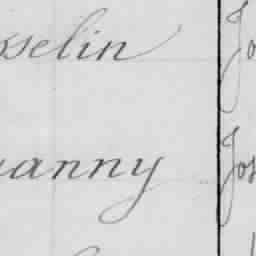 sselin Jo
anny Jos